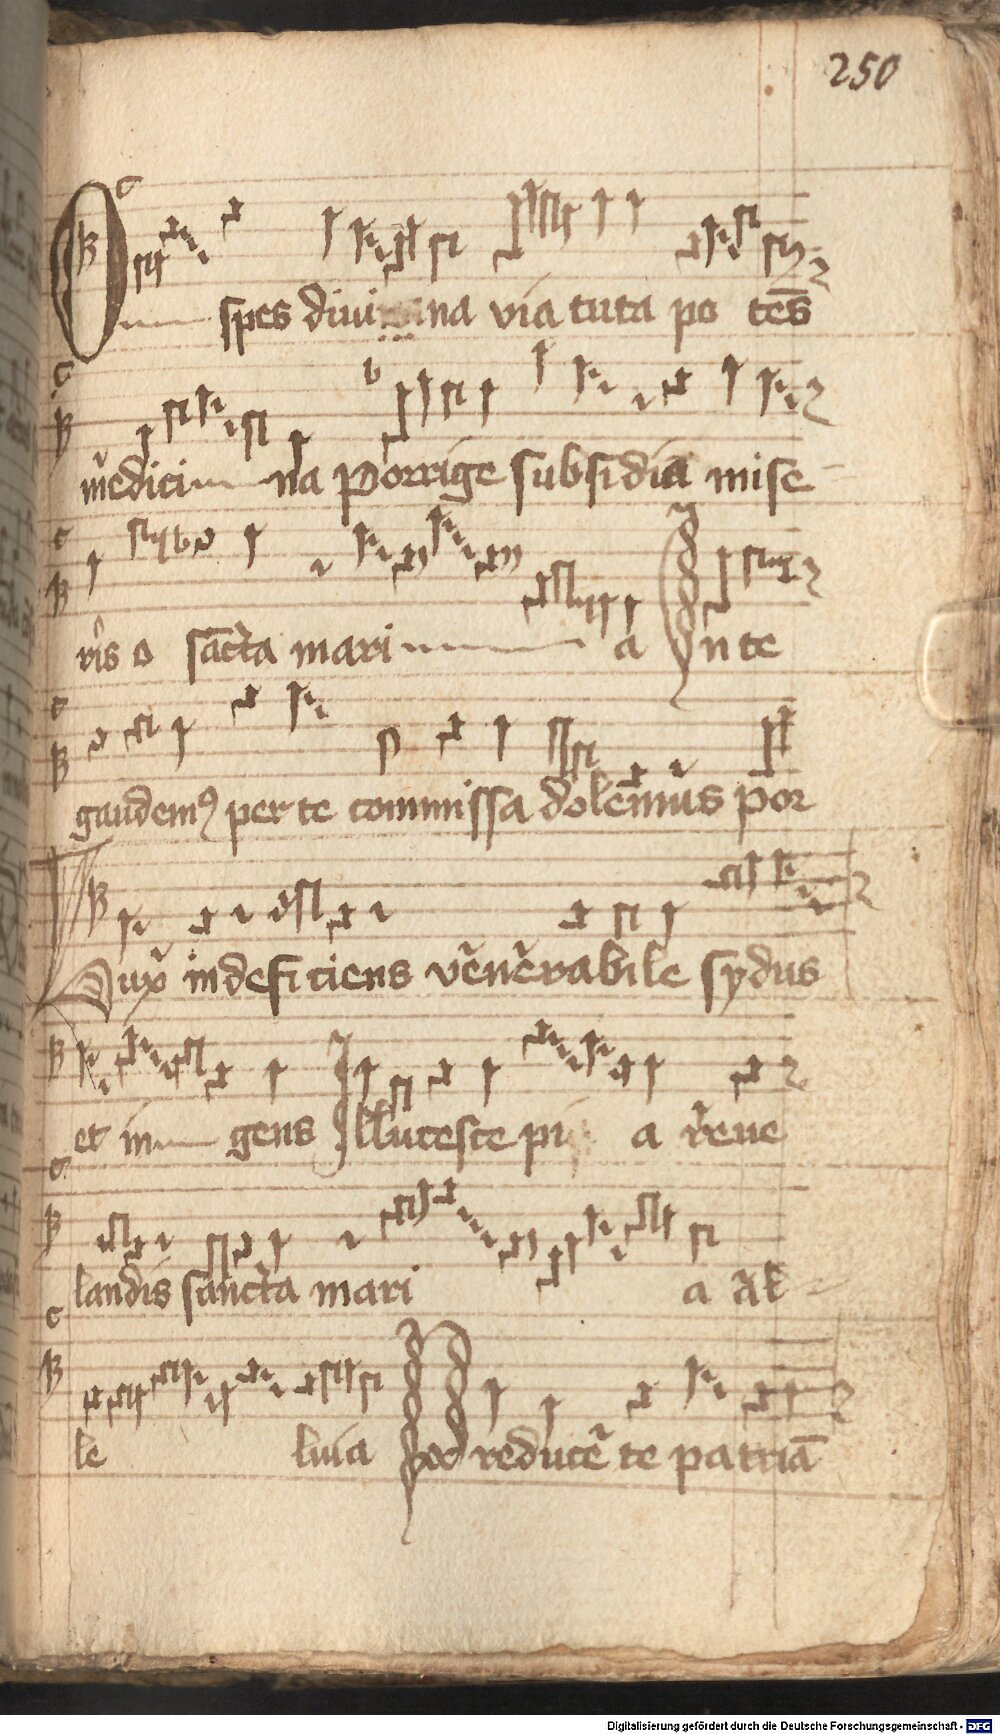 250
O spes diui na via tuta po tēs
medici na Porrige subsidia mise
ris o sācta mari a In te
gaudem⁹ per te commissa dolemus por
Lux indeficiens venerabile sydus
et in gens Illucesce pi a reue
landis sancta mari a Al
le luia reducē te patriā
Digitalisierung gefördert durch die Deutsche Forschungsgemeinschaft - DFG